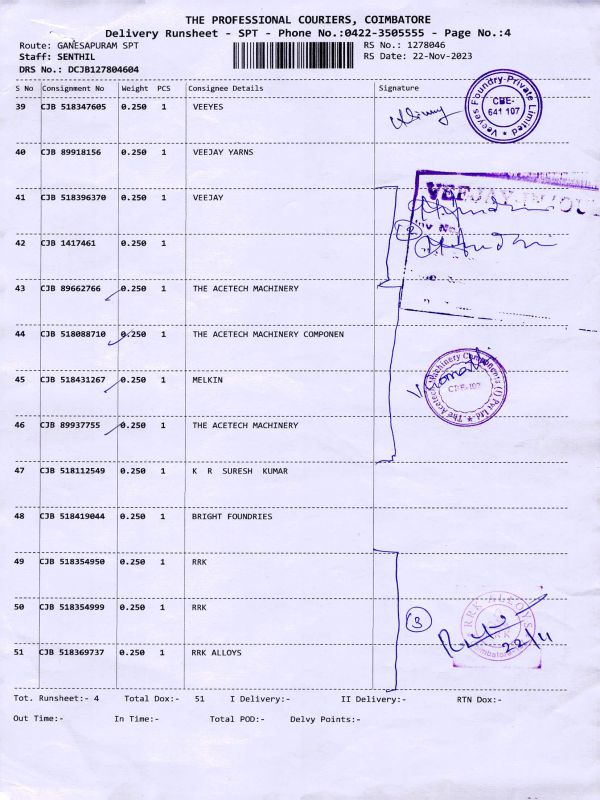 THE PROFESSIONAL COURIERS, COIMBATORE
Delivery Runsheet - SPT - Phone No.:0422-3505555 - Page No.:4
Route: GANESAPURAM SPT RS No.: 1278046
Staff: SENTHIL RS Date: 22-Nov-2023
DRS No.: DCJB127804604
S No Consignment No Weight PCS Consignee Details Signature
39 CJB 518347605 0.250 1 VEEYES
Veeyes Foundry Private Limited
CBE-
641 107
40 CJB 89918156 0.250 1 VEEJAY YARNS
41 CJB 518396370 0.250 1 VEEJAY
VEEJAY
INV No
42 CJB 1417461 0.250 1
2
43 CJB 89662766 0.250 1 THE ACETECH MACHINERY
44 CJB 518088710 0.250 1 THE ACETECH MACHINERY COMPONEN
45 CJB 518431267 0.250 1 MELKIN
The Acetech Machinery Components (I) Pvt Ltd
CBE-107
46 CJB 89937755 0.250 1 THE ACETECH MACHINERY
47 CJB 518112549 0.250 1 K R SURESH KUMAR
48 CJB 518419044 0.250 1 BRIGHT FOUNDRIES
49 CJB 518354950 0.250 1 RRK
50 CJB 518354999 0.250 1 RRK
3
RRK ALLOYS
22/11
51 CJB 518369737 0.250 1 RRK ALLOYS
Tot. Runsheet:- 4 Total Dox:- 51 I Delivery:- II Delivery:- RTN Dox:-
Out Time:- In Time:- Total POD:- Delvy Points:-